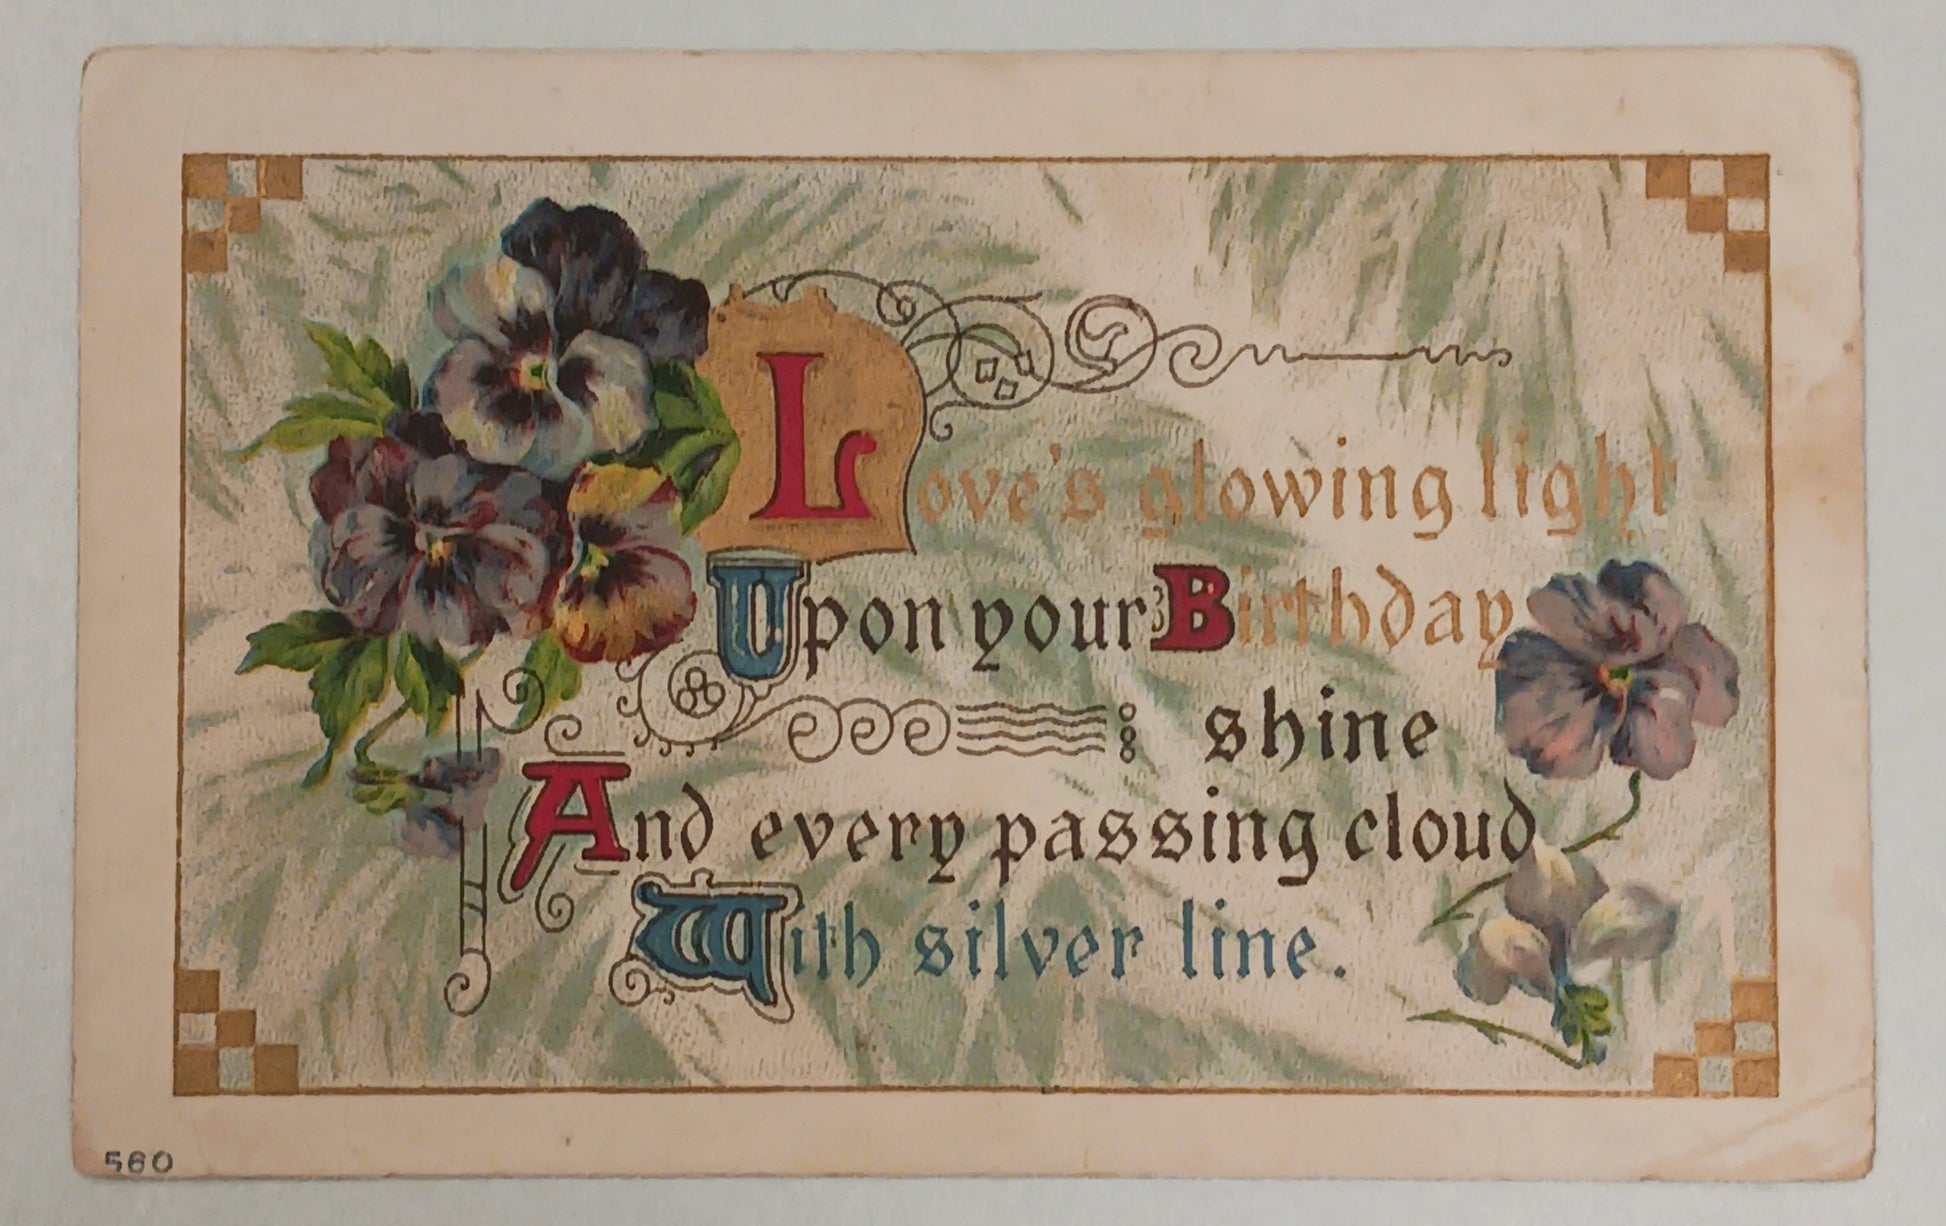 Love's glowing light
Upon your Birthday
shine
And every passing cloud
With silver line.
560